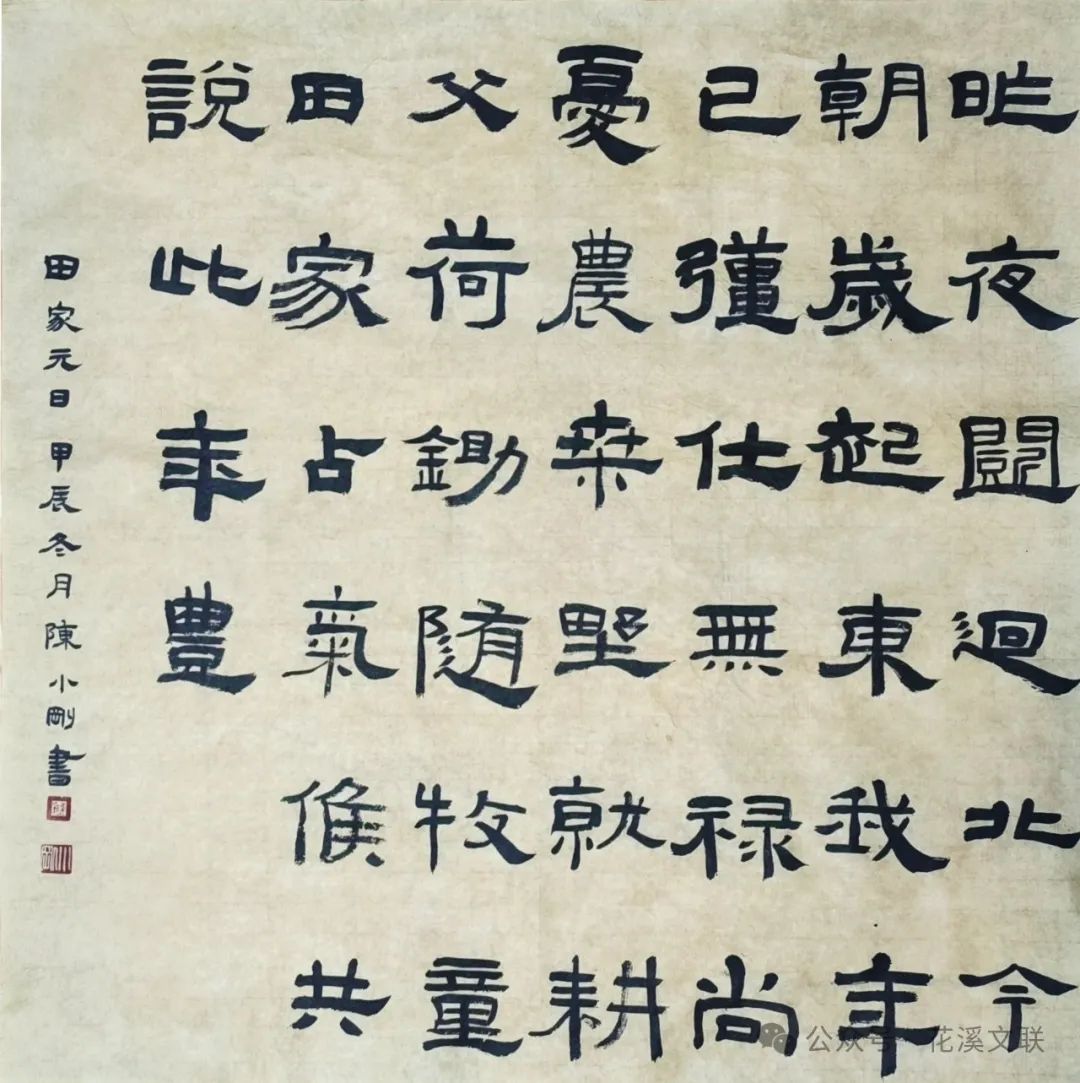 昨夜闘迴北今
朝歲起東我年
已彊仕無禄尚
憂農桒野就耕
父荷鋤随牧童
田家占氣候共
說此年豊
田家元日 甲辰冬月 陳小剛書
公众号 · 花溪文联